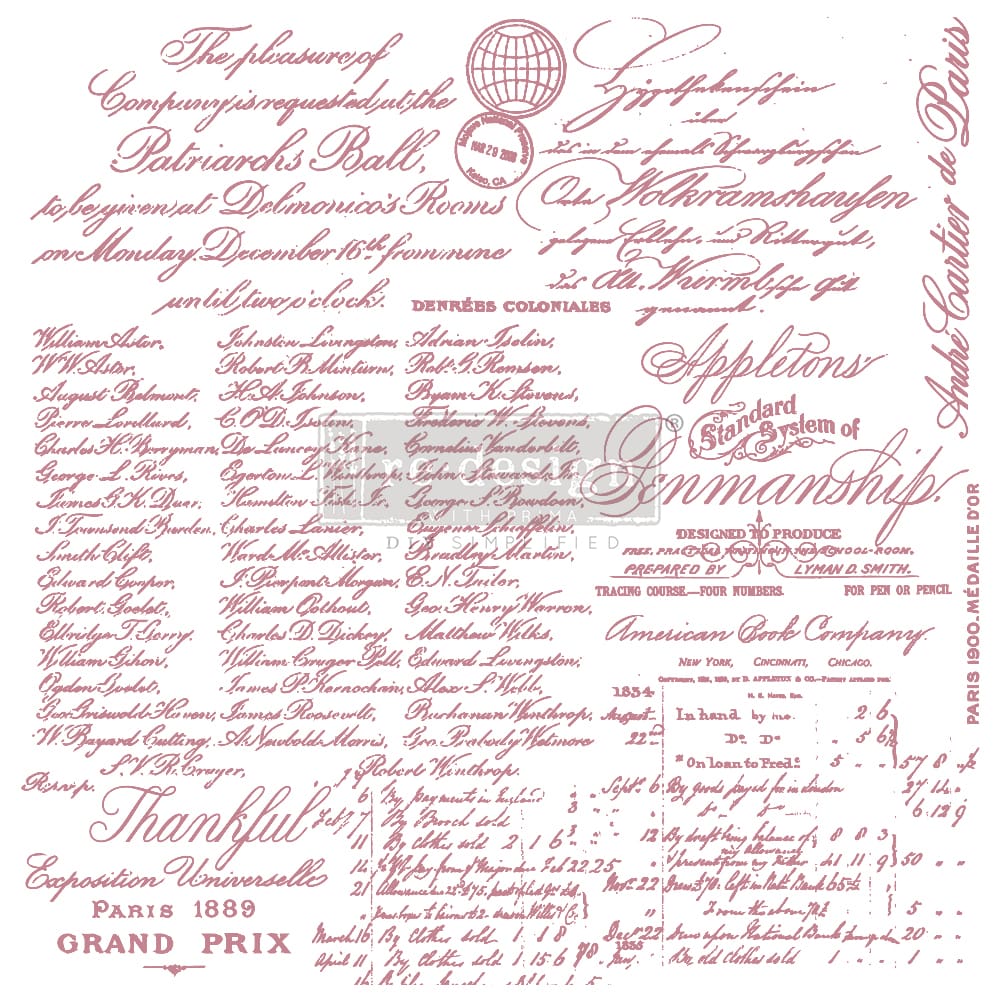 The pleasure of
Company is requested at the
Patriarchs Ball,
to be given at Delmonico's Rooms
on Monday December 16th from nine
until two o'clock.
Mojave National Preserve
MAR 29 2008
Kelso, CA
Hypothekenschein
über
das in dem ehemals Schwarzburgschen
Orte Wolkramshausen
gelegene Erblehn- und Rittergut,
das Alt. Wurmb'sche Gut
genannt.
André Cartier de Paris
DENRÉES COLONIALES
William Astor, Johnston Livingston, Adrian Iselin,
W.W. Astor, Robert B. Minturn, Robt. G. Remsen,
August Belmont, H.A. Johnson, Byam K. Stevens,
Pierre Lorillard, C.O'D. Iselin, Frederic W. Stevens,
Charles H. Berryman, De Lancey Kane, Cornelius Vanderbilt,
George L. Rives, Egerton L. Winthrop, John Steward, Jr.
James G.K. Duer, Hamilton Fish, Jr. George S. Bowdoin,
J. Townsend Burden, Charles Lanier, Eugene Schieffelin,
Smith Clift, Ward McAllister, Bradley Martin,
Edward Cooper, J. Pierpont Morgan, E.N. Tailer,
Robert Goelet, William Oothout, Geo. Henry Warren,
Elbridge T. Gerry, Charles D. Dickey, Matthew Wilks,
William Gihon, William Cruger Pell, Edward Livingston,
Ogden Goelet, James P. Kernochan, Alex S. Webb,
Geo. Griswold Haven, James Roosevelt, Buchanan Winthrop,
W. Bayard Cutting, A. Newbold Morris, Geo. Peabody Wetmore
S.V.R. Cruger, Robert Winthrop.
R.s.v.p.
re·design®
WITH PRIMA
DIY SIMPLIFIED
Appletons'
Standard
System of
Penmanship.
DESIGNED TO PRODUCE
FREE, PRACTICAL WRITING IN THE SCHOOL-ROOM.
PREPARED BY LYMAN D. SMITH.
TRACING COURSE.—FOUR NUMBERS. FOR PEN OR PENCIL
American Book Company.
NEW YORK, CINCINNATI, CHICAGO.
PARIS 1900. MÉDAILLE D'OR
Thankful
Exposition Universelle
PARIS 1889
GRAND PRIX
1834
August In hand by me 2 6
22nd Do. Do. " 5 6½
* On loan to Fred. 5 " " 57 8 "½
Sept. 6 By goods payed for in London 27 14 "
6 12 9
12 By draft being balance of my allowance 8 8 3
present from my Father 41 11 9 50 " "
Novr. 22
From the above 5 " "
Decr. 22 Drew upon National Bank 20 " "
1835
Jany. By old Clothes sold 1 " 1
6 By payments in England
Feby 7 By Brooch sold
11 By Clothes sold 2 1 6
21
March 16 By Clothes sold 1 1 8
April 11 By Clothes sold 1 15 6